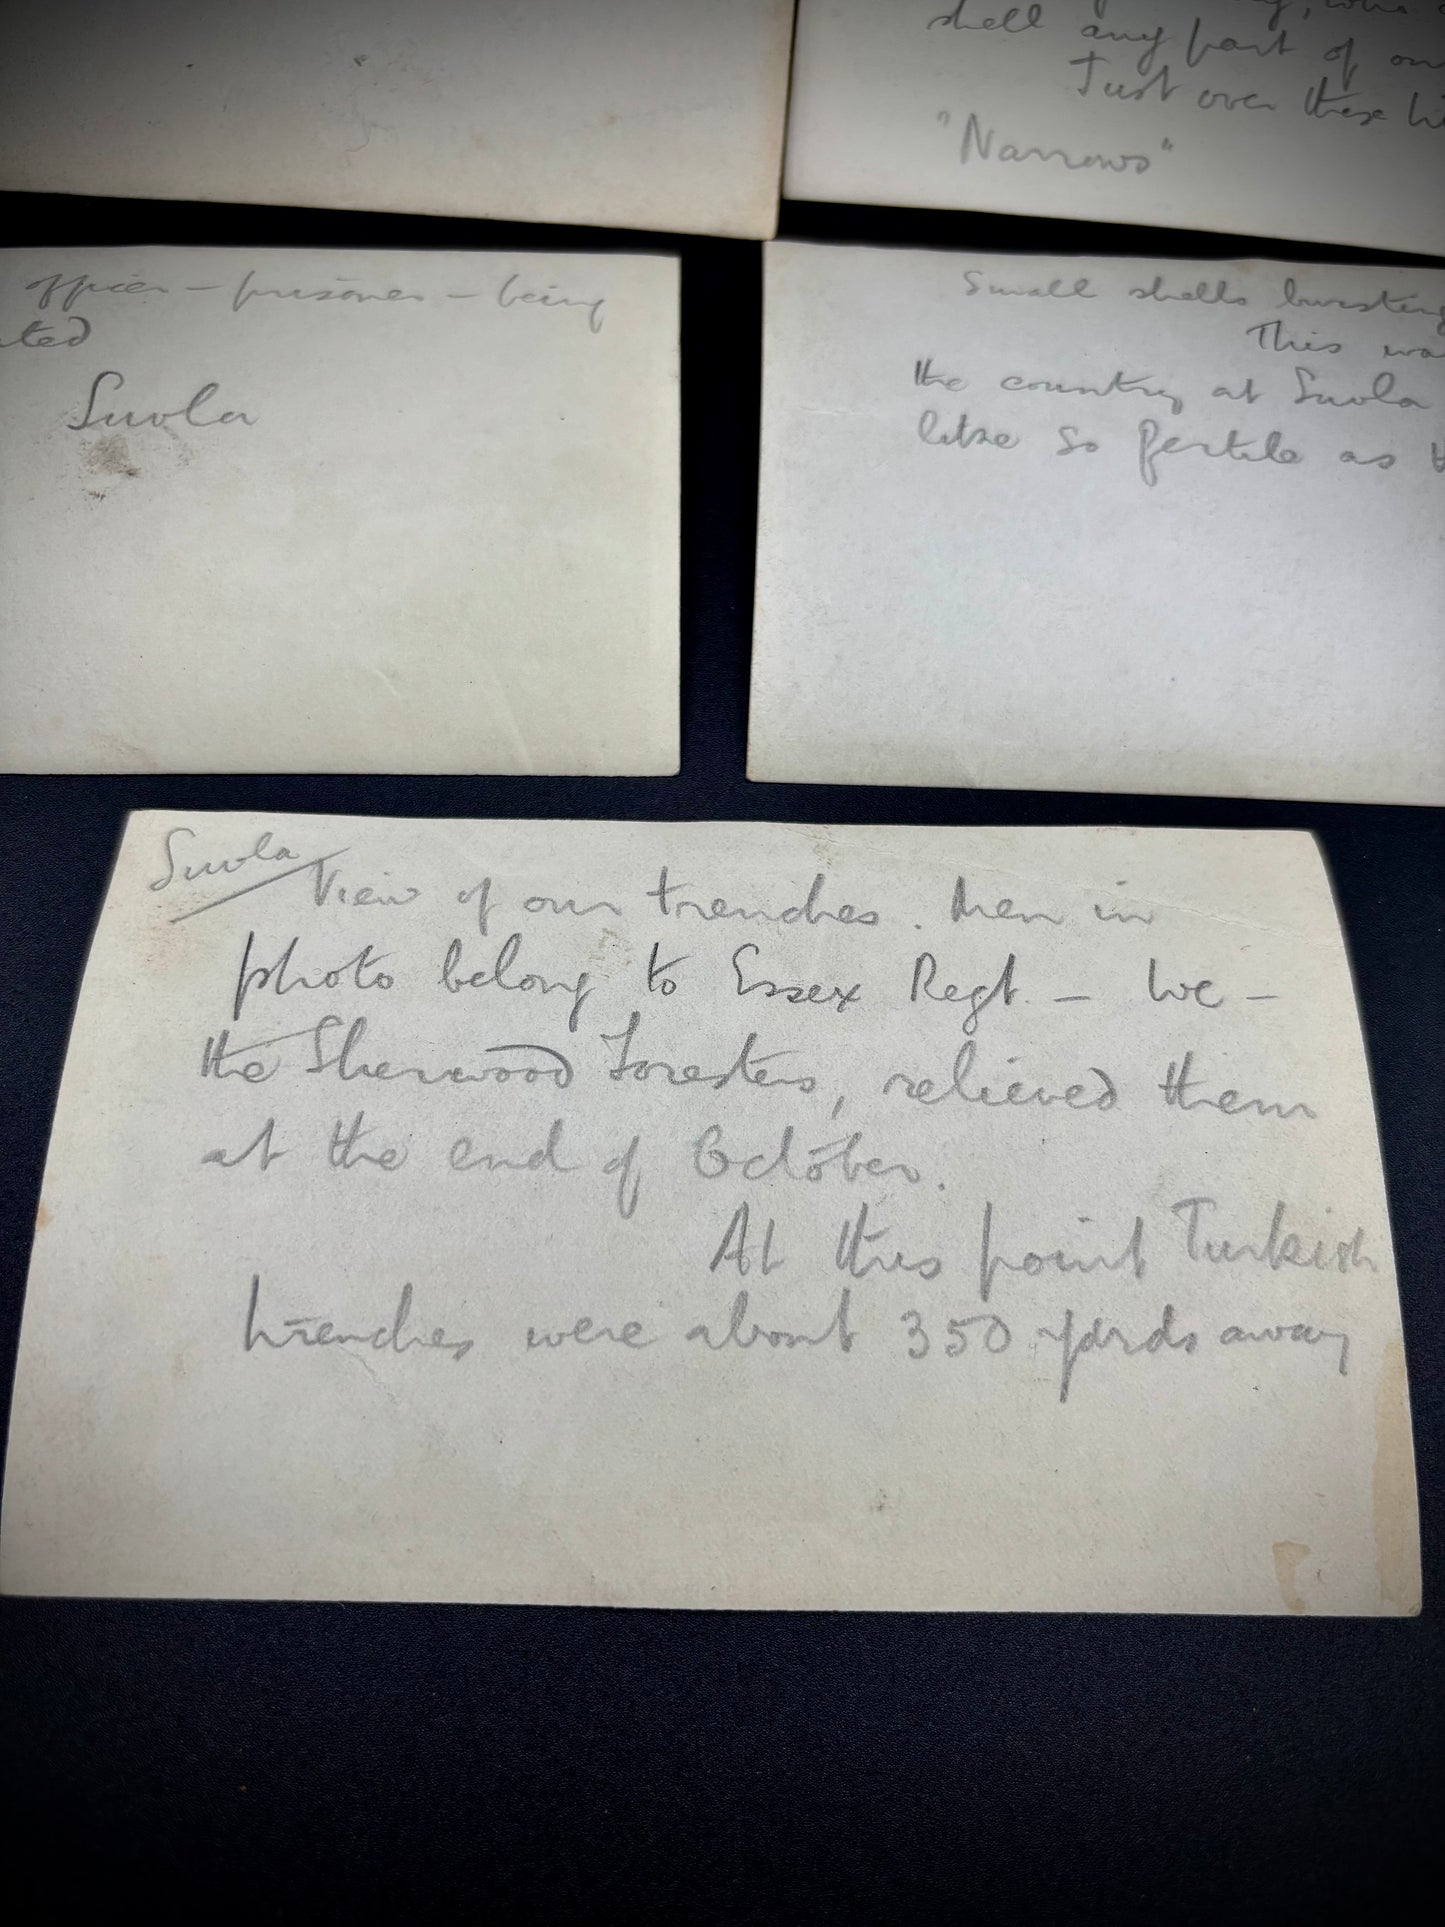 shell any part of our
Just over these
"Narrows"
officer - prisoner - being
Suvla
Small shells bursting
This was
the country at Suvla
like so fertile as
Suvla
View of our trenches. Men in
photo belong to Essex Regt. - We -
the Sherwood Foresters, relieved them
at the end of October.
At this point Turkish
trenches were about 350 yards away